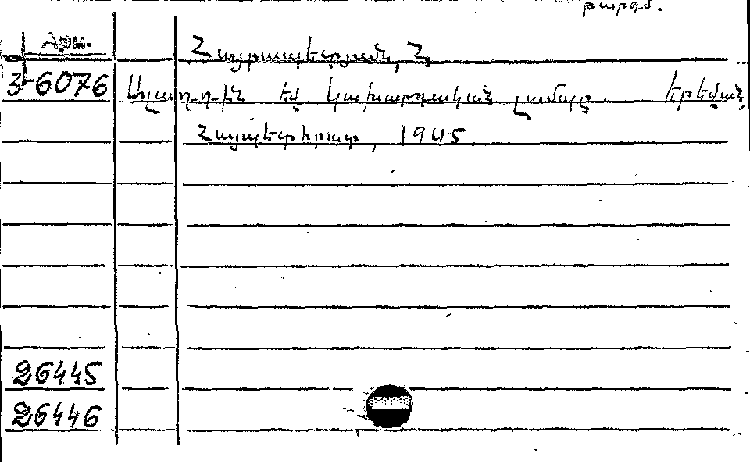 թարգմ.
Арм.
Հայրապետյան, Հ.
3-6076 Ալադդին եվ կախարդական լամպը. Երեվան,
Հայպետհրատ, 1945
26445
26446